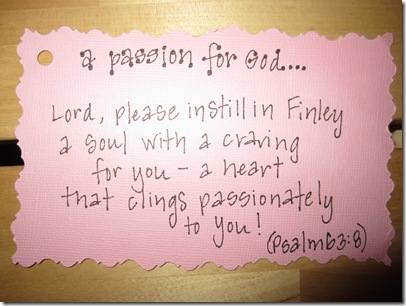 a passion for God....
Lord, please instill in Finley
a soul with a craving
for you - a heart
that clings passionately
to you!
(Psalm 63:8)